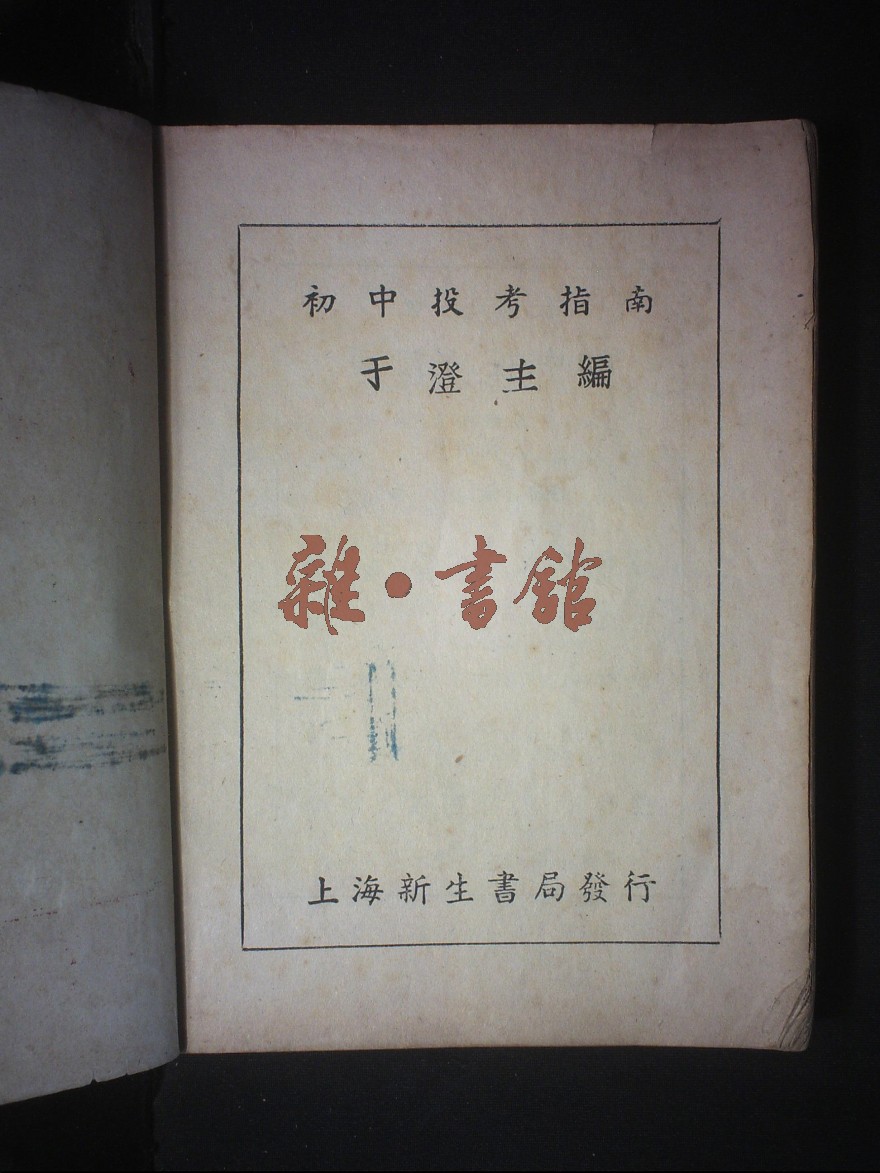 初中投考指南
于澄主編
雜·書館
上海新生書局發行